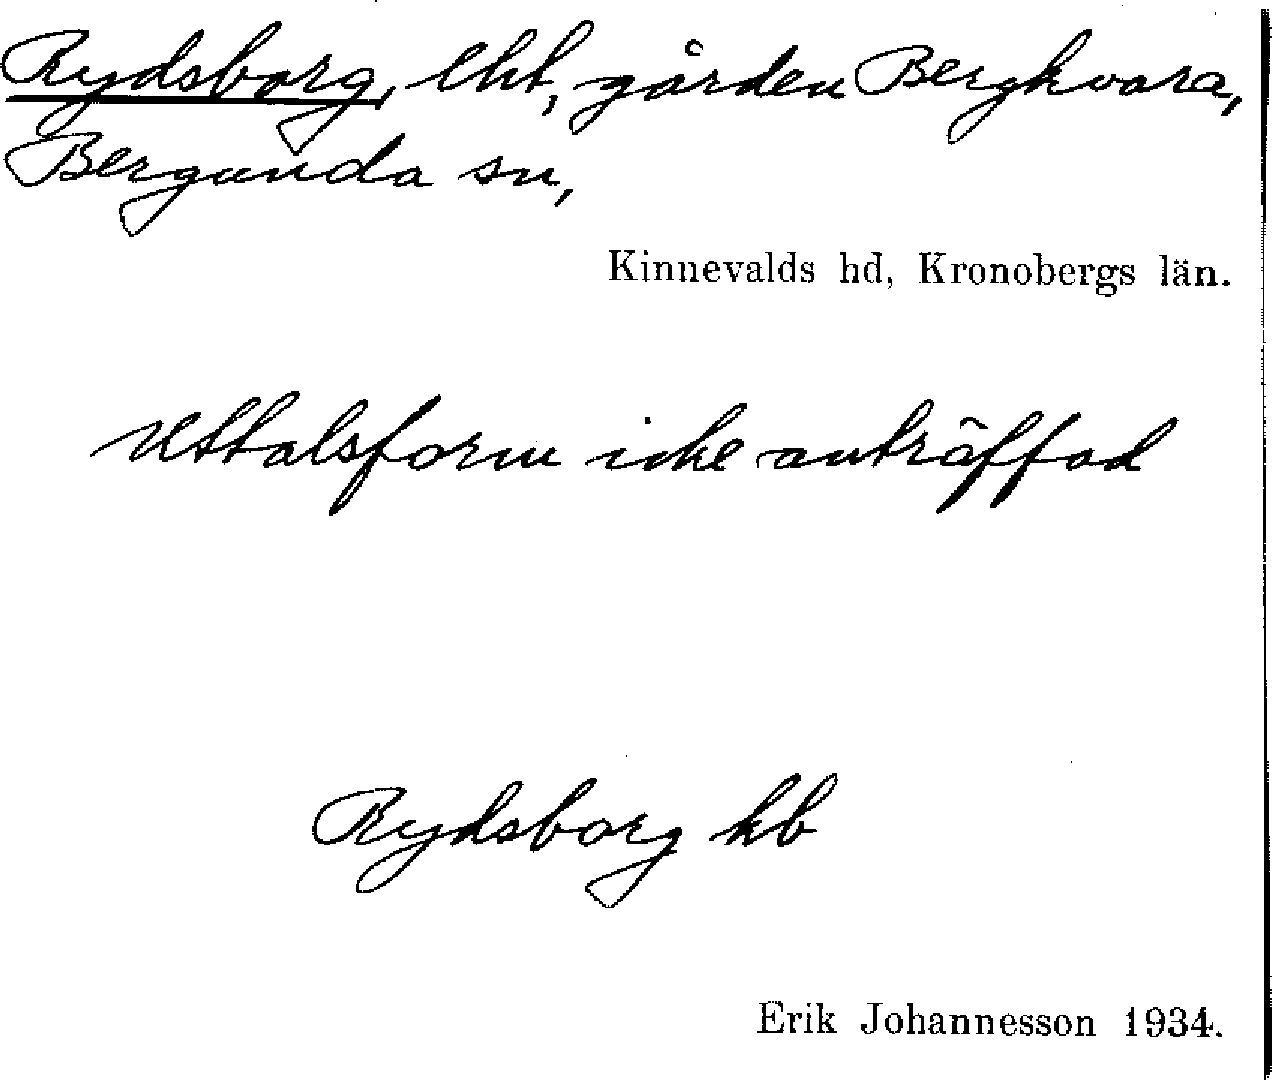 Rydsborg, lht, gården Bergkvara,
Bergunda sn,
Kinnevalds hd, Kronobergs län.
Uttalsform icke anträffad
Rydsborg kb
Erik Johannesson 1934.